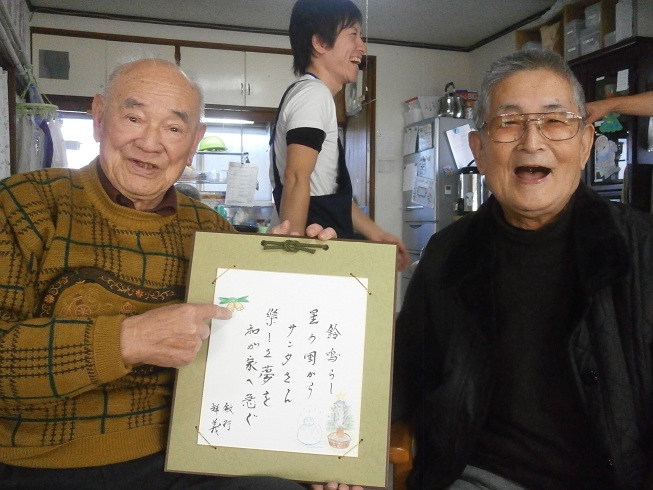 鈴鳴らし
星の国から
サンタさん
楽しき夢を
和が家へ急ぐ
敏行
輝義